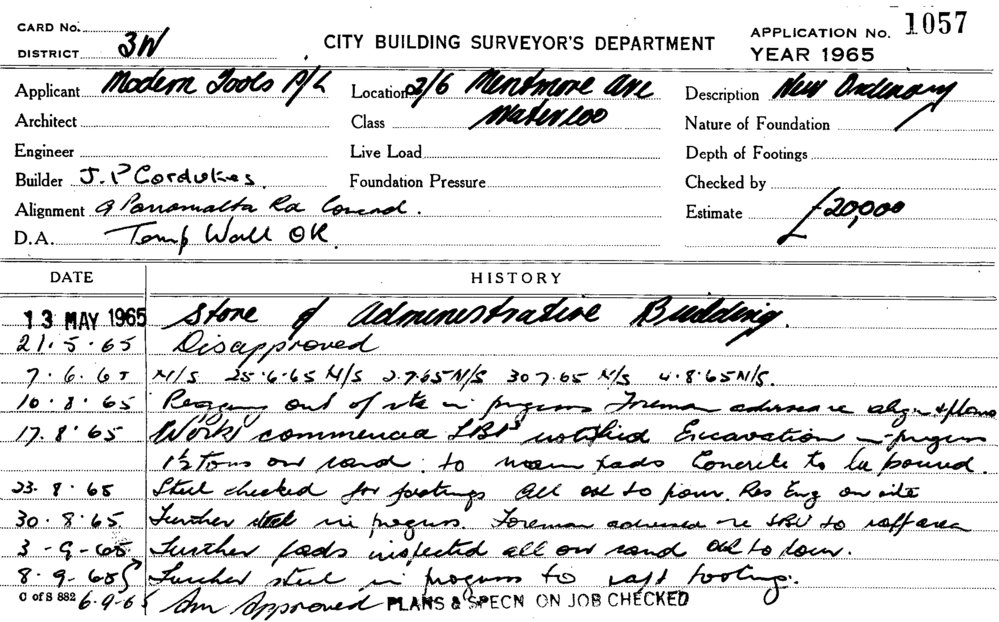 CARD No.
DISTRICT 3W
CITY BUILDING SURVEYOR'S DEPARTMENT
APPLICATION No. 1057
YEAR 1965
Applicant Modern Tools P/L Location 2/6 Mentmore Ave Description New Ordinary
Architect Class Waterloo Nature of Foundation
Engineer Live Load Depth of Footings
Builder J. P Cordukes. Foundation Pressure Checked by
Alignment 9 Parramatta Rd Concord. Estimate £20,000
D.A. Temp Wall OK.
DATE HISTORY
13 MAY 1965 Store & Administrative Building.
21.5.65 Disapproved
7.6.65 N/S 25.6.65 N/S 2.7.65 N/S 30.7.65 N/S 4.8.65 N/S.
10.8.65 Pegging out of site in progress Foreman advised re align & plans
17.8.65 Works commenced notified Excavation in progress
1½ Tons on sand. to main pads Concrete to be poured.
23.8.65 Steel checked for footings All ok to pour. Res Eng on site
30.8.65 Further steel in progress. Foreman advised re to raft area
3-9-65 Further pads inspected all on sand ok to pour.
8.9.65 Further steel in progress to raft footing.
C of S 882 6-9-65 Am Approved PLANS & SPECN ON JOB CHECKED